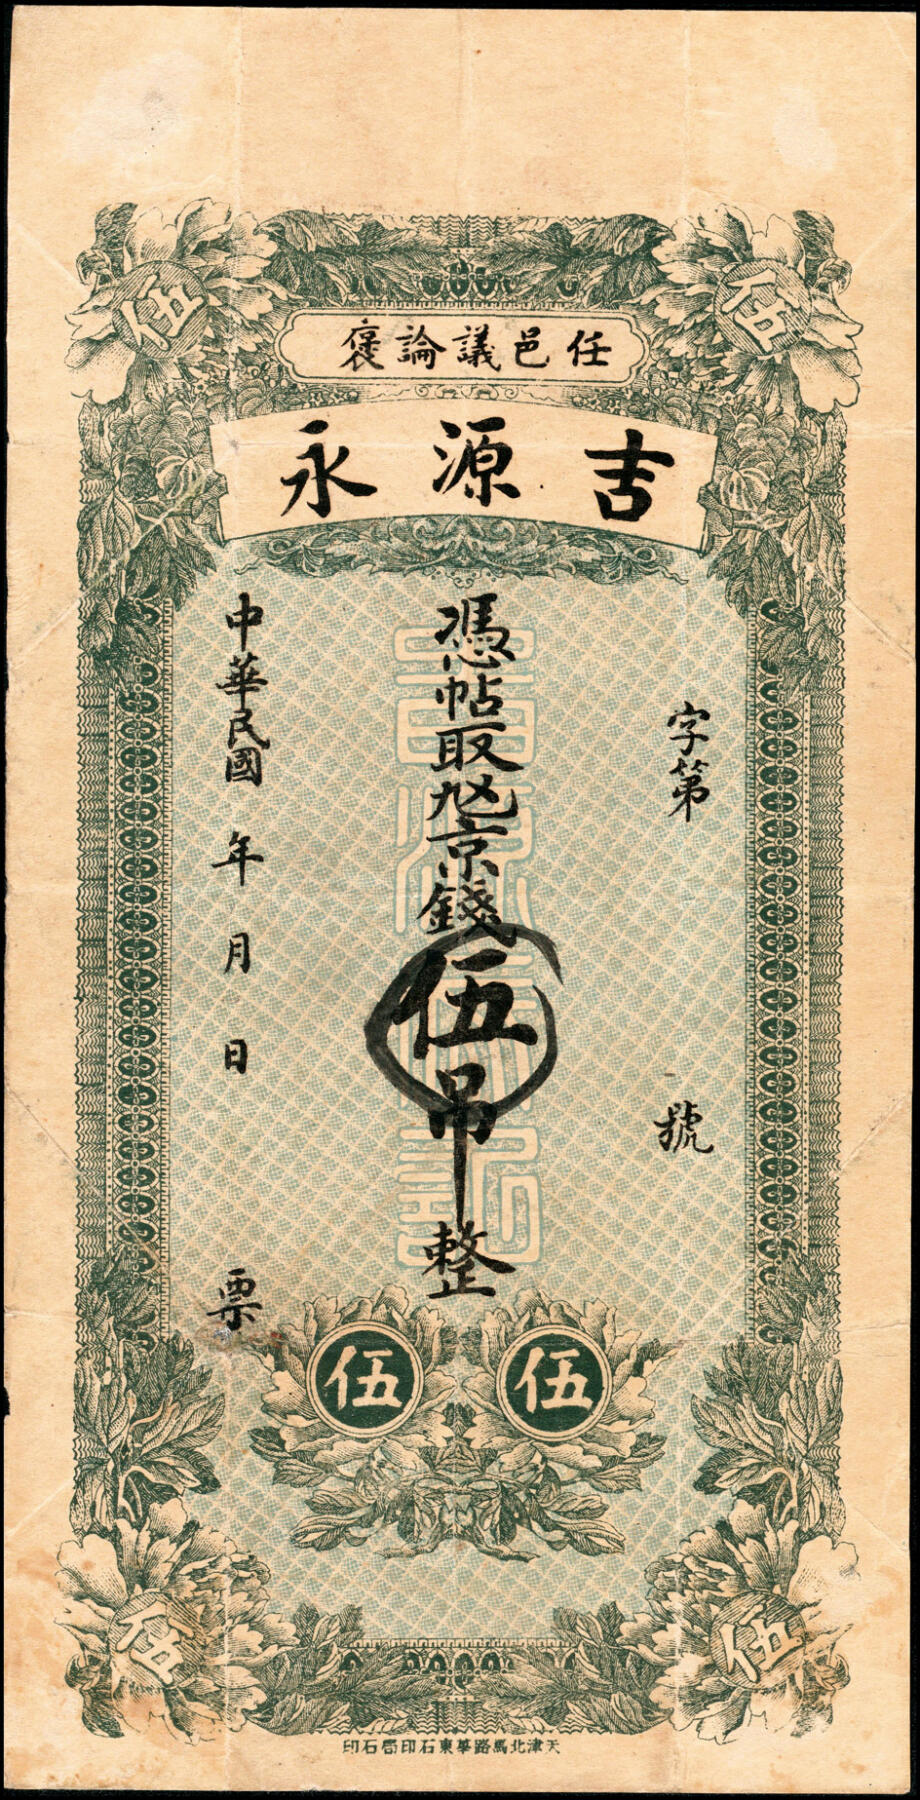 伍 伍
任邑議論褒
吉源永
字第 號
憑帖取九兌京錢伍吊整
中華民國 年 月 日 票
伍 伍
伍 伍
天津北馬路華東石印局石印